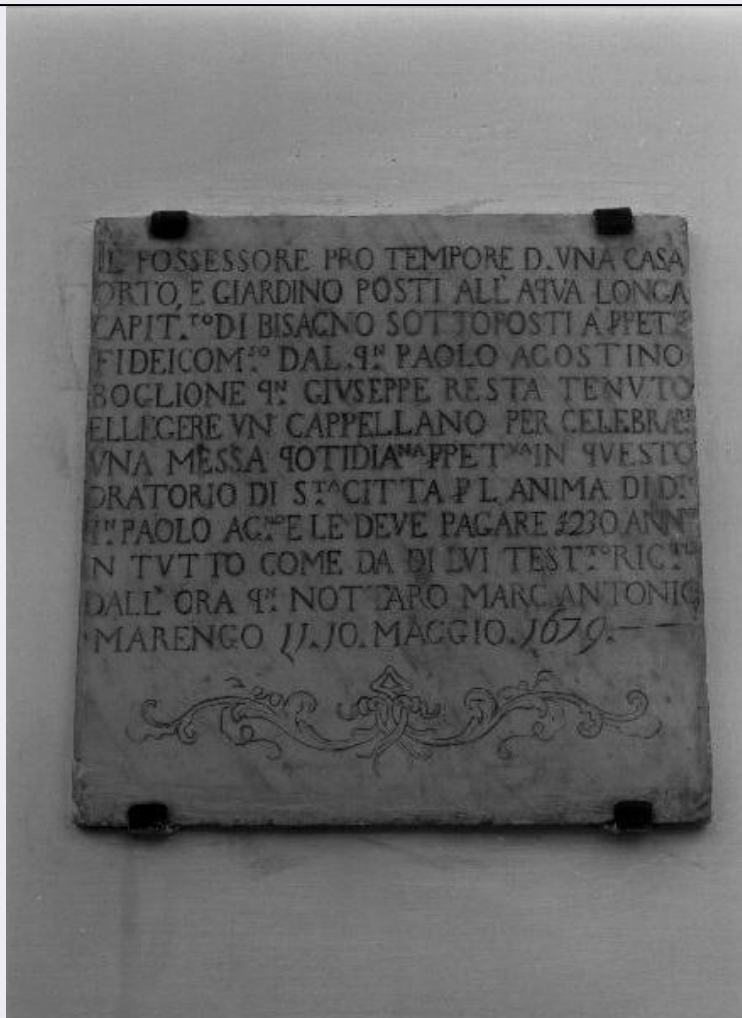 IL POSSESSORE PRO TEMPORE D.VNA CASA
ORTO, E GIARDINO POSTI ALL'AqVA LONGA
CAPIT.TO DI BISAGNO SOTTOPOSTI A PPET.
FIDEICOM.SO DAL.qN PAOLO AGOSTINO
BOGLIONE qN GIVSEPPE RESTA TENVTO
ELLEGERE VN CAPPELLANO PER CELEBRA.RE
VNA MESSA qOTIDIANA PPETVA IN qVESTO
ORATORIO DI S.TA CITTA P L ANIMA DI D.
qN PAOLO AG.NO E LE DEVE PAGARE £230 ANN
IN TVTTO COME DA DI LVI TEST.TO RIC.TO
DALL'ORA qN NOTTARO MARC ANTONIO
MARENGO 11.10.MAGGIO.1679.—